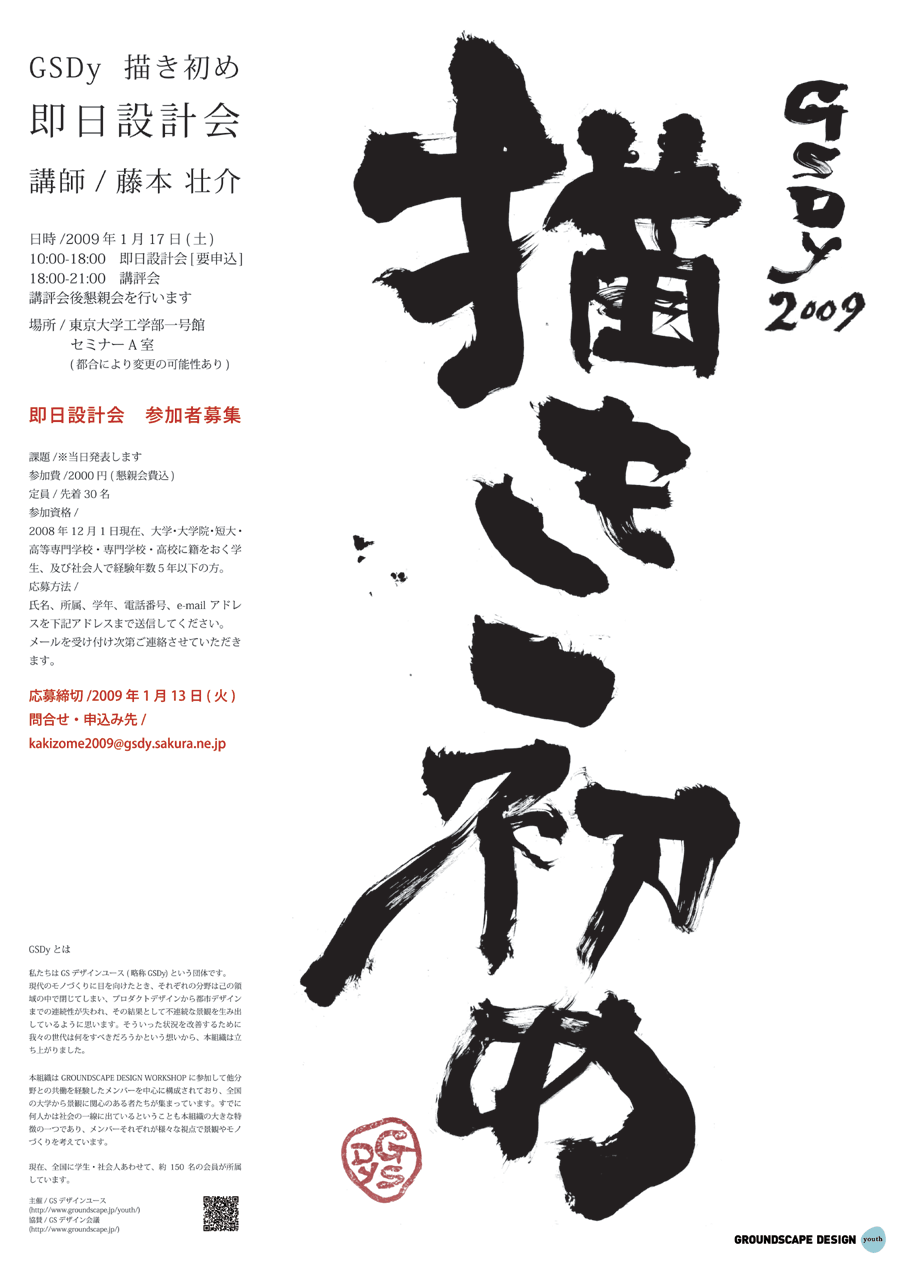 GSDy 描き初め
即日設計会
講師 / 藤本 壮介
日時 /2009 年 1 月 17 日 ( 土 )
10:00-18:00 即日設計会 [ 要申込 ]
18:00-21:00 講評会
講評会後懇親会を行います
場所 / 東京大学工学部一号館
セミナー A 室
( 都合により変更の可能性あり )
即日設計会 参加者募集
課題 /※当日発表します
参加費 /2000 円 ( 懇親会費込 )
定員 / 先着 30 名
参加資格 /
2008 年 12 月 1 日現在、大学・大学院・短大・
高等専門学校・専門学校・高校に籍をおく学
生、及び社会人で経験年数 5 年以下の方。
応募方法 /
氏名、所属、学年、電話番号、e-mail アドレ
スを下記アドレスまで送信してください。
メールを受け付け次第ご連絡させていただき
ます。
応募締切 /2009 年 1 月 13 日 ( 火 )
問合せ・申込み先 /
kakizome2009@gsdy.sakura.ne.jp
GSDy とは
私たちは GS デザインユース ( 略称 GSDy) という団体です。
現代のモノづくりに目を向けたとき、それぞれの分野は己の領
域の中で閉じてしまい、プロダクトデザインから都市デザイン
までの連続性が失われ、その結果として不連続な景観を生み出
しているように思います。そういった状況を改善するために
我々の世代は何をすべきだろうかという想いから、本組織は立
ち上がりました。
本組織は GROUNDSCAPE DESIGN WORKSHOP に参加して他分
野との共働を経験したメンバーを中心に構成されており、全国
の大学から景観に関心のある者たちが集まっています。すでに
何人かは社会の一線に出ているということも本組織の大きな特
徴の一つであり、メンバーそれぞれが様々な視点で景観やモノ
づくりを考えています。
現在、全国に学生・社会人あわせて、約 150 名の会員が所属
しています。
主催 / GS デザインユース
(http://www.groundscape.jp/youth/)
協賛 / GS デザイン会議
(http://www.groundscape.jp/)
GSDy
2009
描き初め
GSDy
GROUNDSCAPE DESIGN youth